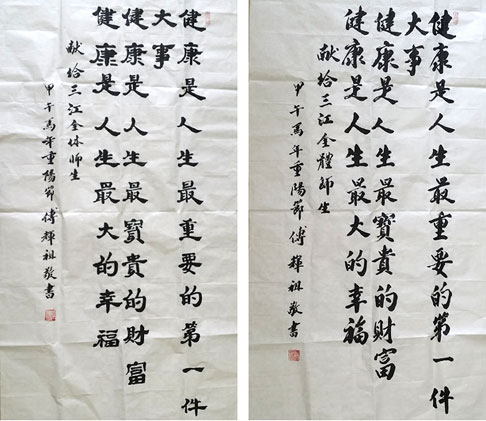 健康是人生最重要的第一件
大事
健康是人生最寶貴的財富
健康是人生最大的幸福
献给三江全体师生
甲午馬年重陽節傅輝祖敬書
健康是人生最重要的第一件
大事
健康是人生最寶貴的財富
健康是人生最大的幸福
献给三江全體師生
甲午馬年重陽節傅輝祖敬書